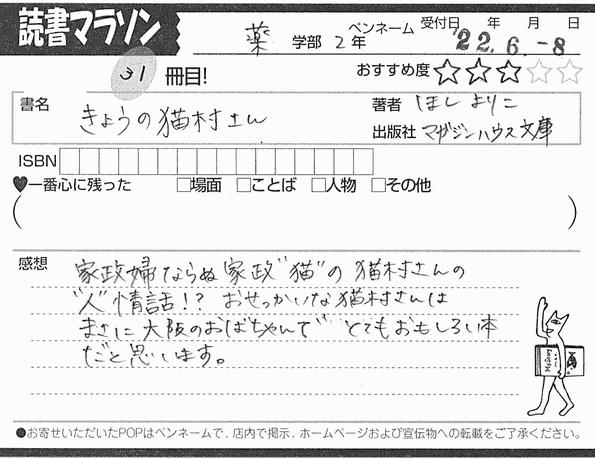 読書マラソン
薬 学部 2年 ペンネーム 受付日 年 月 日
'22.6.-8
31 冊目! おすすめ度 ★★★☆☆
書名 きょうの猫村さん
著者 ほしよりこ
出版社 マガジンハウス文庫
ISBN
♥一番心に残った □場面 □ことば □人物 □その他
( )
感想
家政婦ならぬ家政"猫"の猫村さんの
"人"情話!? おせっかいな猫村さんは
まさに大阪のおばちゃんで とてもおもしろい本
だと思います。
●お寄せいただいたPOPはペンネームで、店内で掲示、ホームページおよび宣伝物への転載をご了承ください。